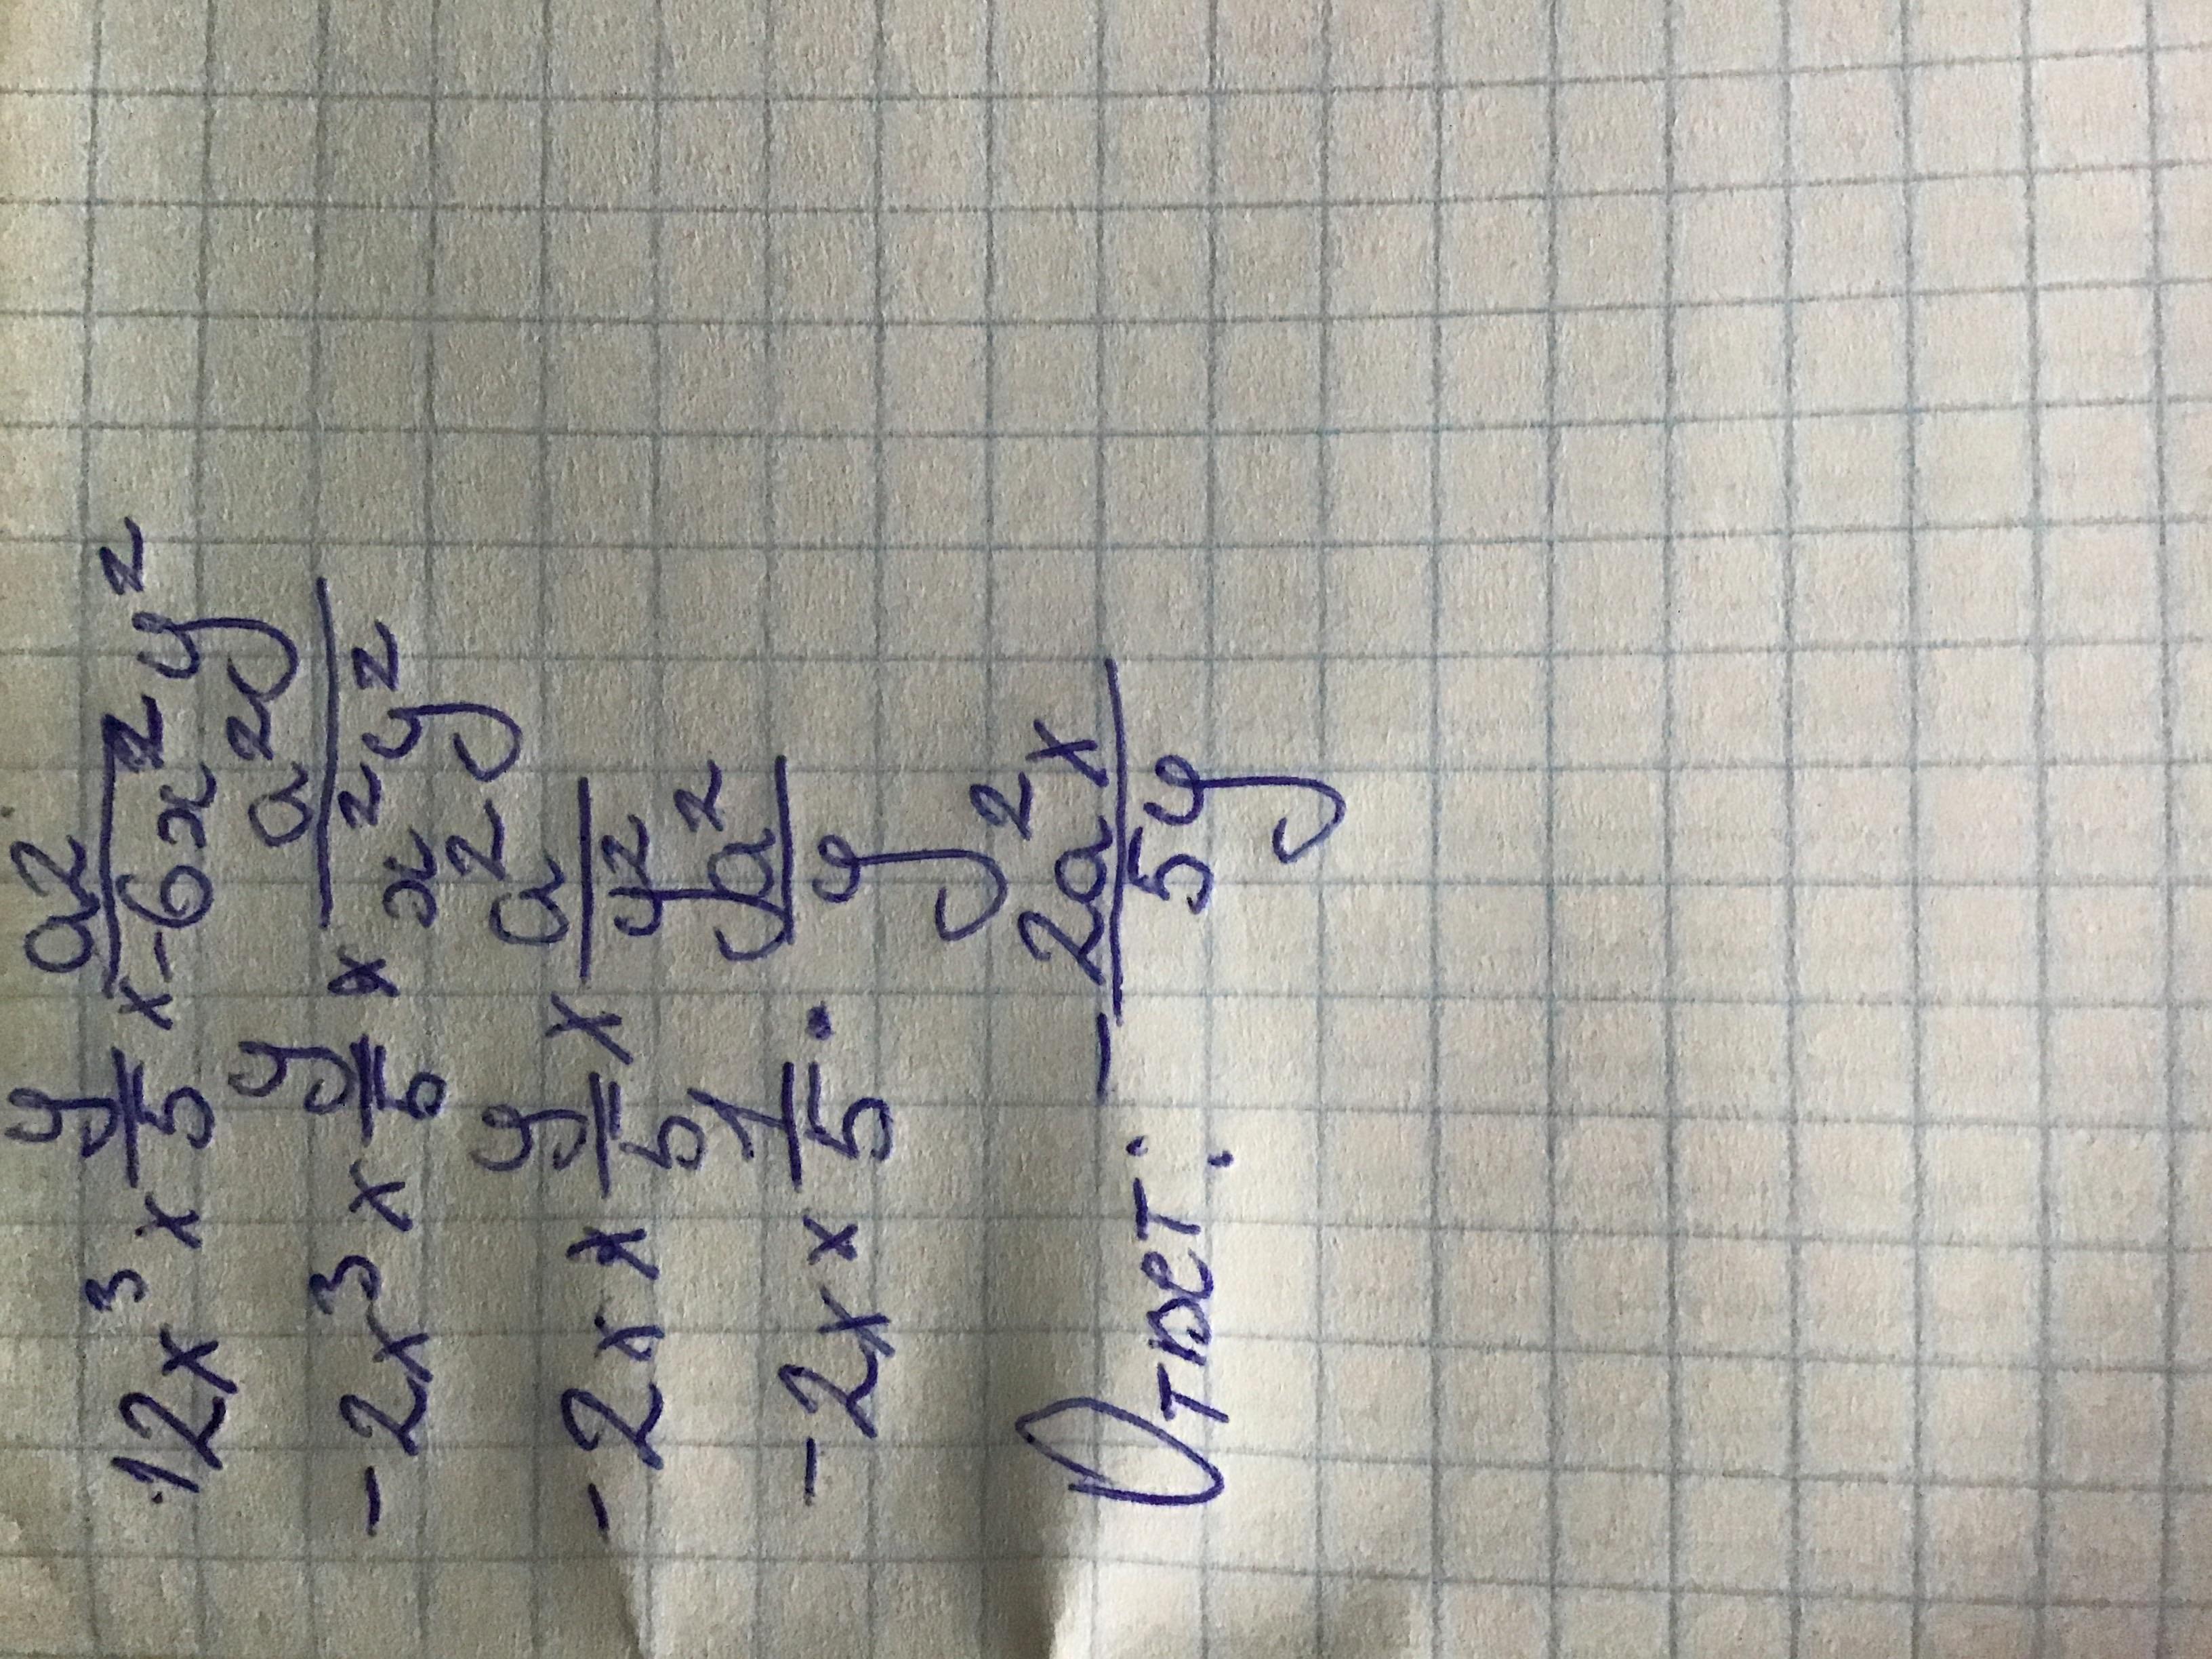 12x³ × y/5 × a²/-6x²y²
-2x³ × y/5 × a²/x²y²
-2x × y/5 × a²/y²
-2x × 1/5 · a²/y
Ответ: - 2a²x/5y